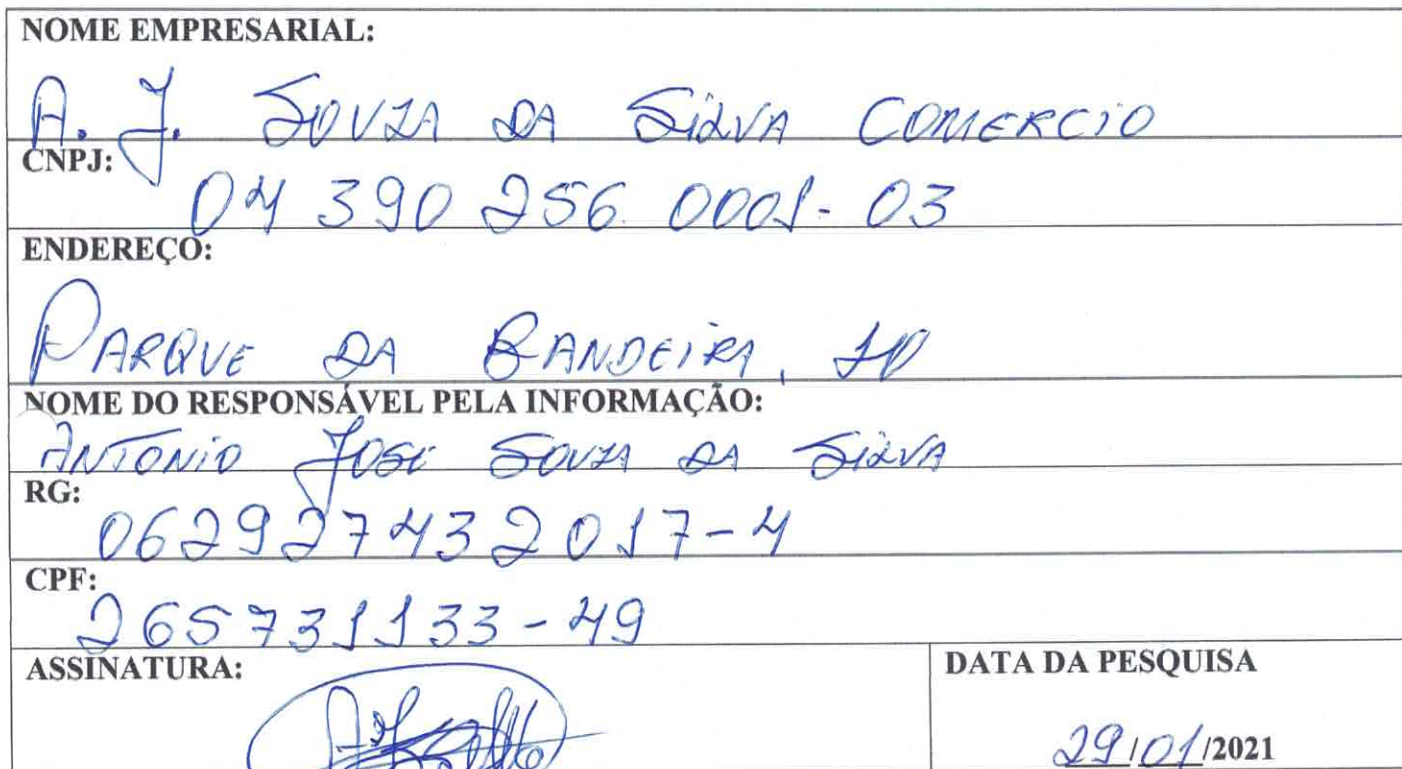 NOME EMPRESARIAL:
A. J. SOUZA DA SILVA COMERCIO
CNPJ:
04 390 256 0001-03
ENDEREÇO:
PARQUE DA BANDEIRA, 10
NOME DO RESPONSÁVEL PELA INFORMAÇÃO:
ANTONIO JOSE SOUZA DA SILVA
RG:
062927432017-4
CPF:
265731133-49
ASSINATURA:
DATA DA PESQUISA
29/01/2021